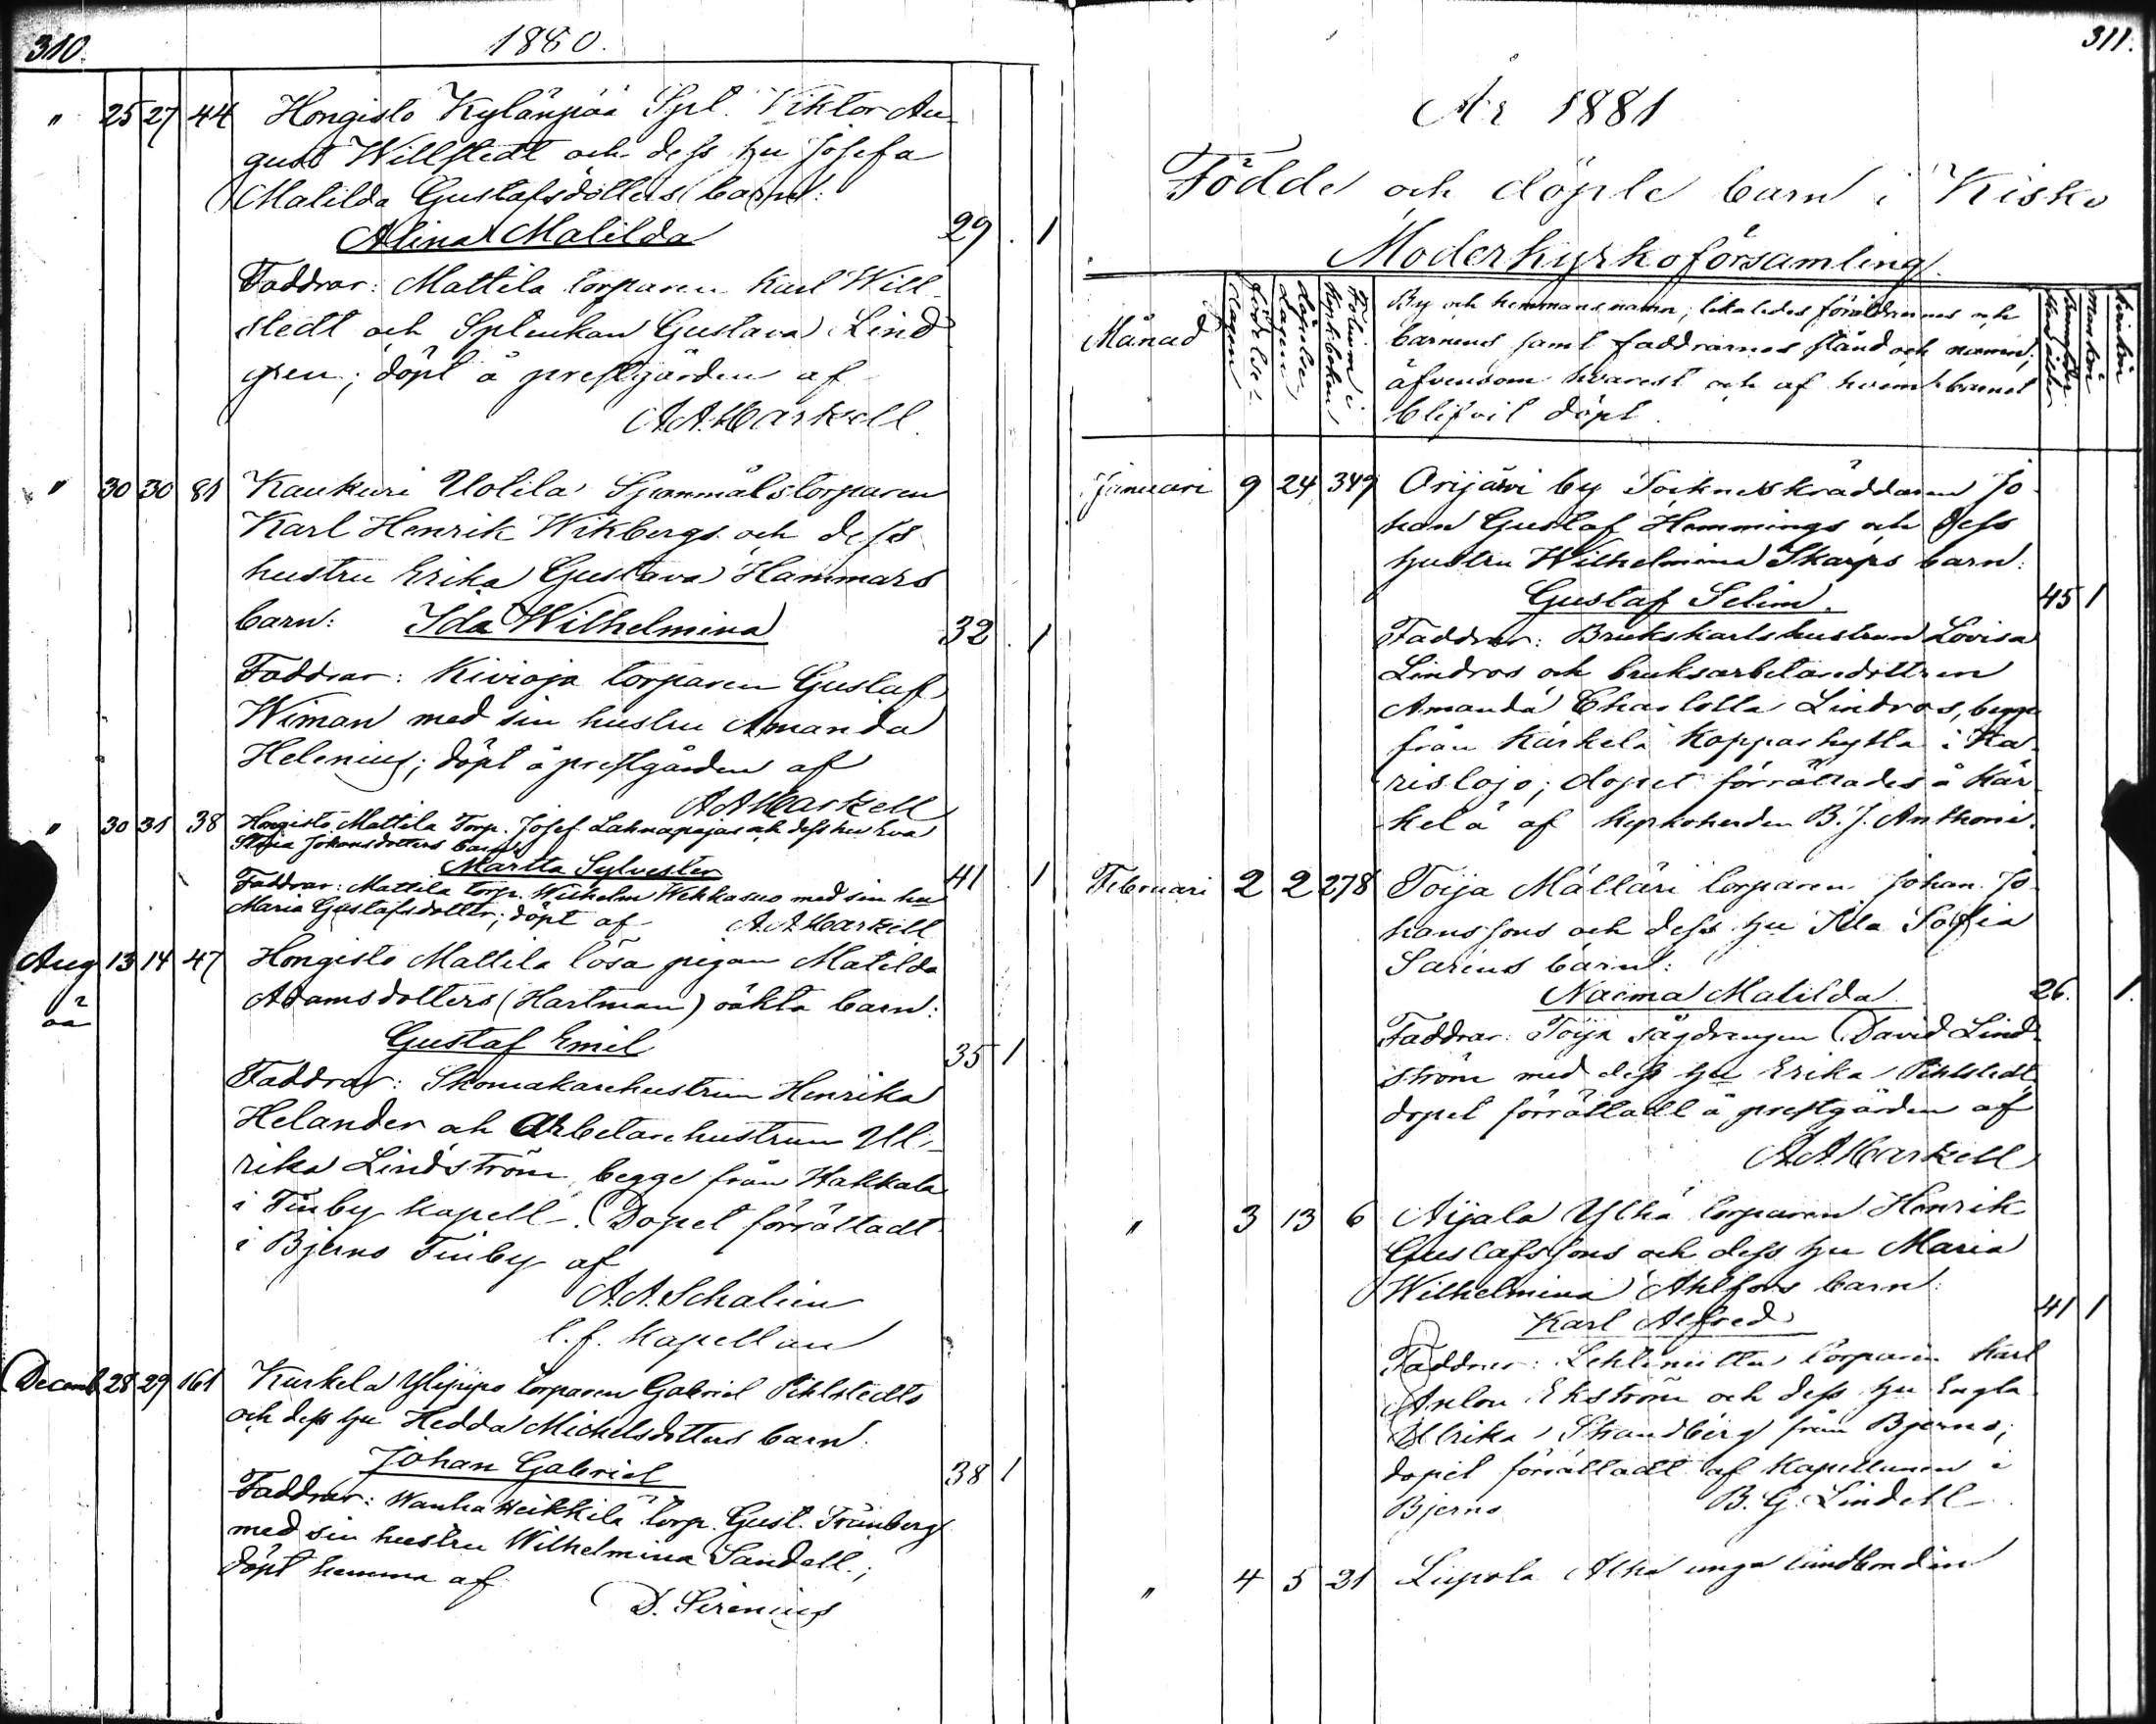 310.
1880.
" 25 27 44 Hongisto Kylänpää Spl. Viktor Au-
gust Willstedt och dess hu Josefa
Matilda Gustafsdotters barn:
Alina Matilda 29 . 1
Faddrar: Mattila torparen Karl Will-
stedt och Spluckan Gustava Lind
gren; döpt å prestgården af
A A Markell.
" 30 30 81 Kaukuri Uotila Spanmålstorparen
Karl Henrik Wikbergs och dess
hustru Erika Gustava Hammars
barn: Ida Wilhelmina 32 . 1
Faddrar: Kivioja torparen Gustaf
Wiman med sin hustru Amanda
Helenius; döpt å prestgården af
A A Markell
" 30 31 38 Hongisto Mattila Torp. Josef Lahnapajas och dess hu Eva
Stina Johansdotters barn
Martta Sylvester 41 . 1
Faddrar: Mattila torp. Wilhelm Wehkasuo med sin hu
Maria Gustafsdotter; döpt af A. A Markell
Aug 13 14 47 Hongisto Mattila lösa pigan Matilda
Adamsdotters (Hartman) oäkta barn:
oä
Gustaf Emil 35 1
Faddrar: Skomakarehustrun Henrika
Helander och Arbetarehustrun Ul-
rika Lindström, begge från Hakkala
i Finby kapell. Dopet förrättadt
i Bjerno Finby af
A. A. Schalien
t. f. Kapellan
Decemb 28 29 161 Kurkela Ylijupo torparen Gabriel Pihlstedts
och dess hu Hedda Michelsdotters barn:
Johan Gabriel 38 1
Faddrar: Wanha Heikkilä torp. Gust. Tränberg
med sin hustru Wilhelmina Sandell;
döpt hemma af
D. Sirenius
311.
År 1881
Födde och döpte barn i Kisko
Moderkyrkoförsamling.
Månad
födelse-
dagen
döpelse-
dagen
Folium i
kyrkboken
By och hemmansnamn, likaledes föräldrarnes och
barnens samt faddrarnes stånd och namn;
äfvensom hvarest och af hvem barnet
blifvit döpt.
mankön
Januari 9 24 349 Orijärvi by Sockneskräddaren Jo-
han Gustaf Hemmings och dess
hustru Wilhelmina Skarps barn:
Gustaf Selim. 45 1
Faddrar: Brukskarlshustrun Lovisa
Lindros och bruksarbetaredottren
Amanda Charlotta Lindros, begge
från Kärkelä kopparhytta i Ka-
rislojo; dopet förrättades å Kär-
kelä af kyrkoherden B. J. Anthoni.
Februari 2 2 278 Toija Mälläri torparen Johan Jo-
hanssons och dess hu Ida Sofia
Sarens barn:
Naema Matilda 26. 1.
Faddrar: Toija sågdrengen David Lind-
ström med dess hu Erika Pihlstedt
dopet förrättadt å prestgården af
A. A. Markell
" 3 13 6 Aijala Ylhä torparen Henrik
Gustafssons och dess hu Maria
Wilhelmina Ahlfors barn:
Karl Alfred 41 1
Faddrar: Lehtinitty torparen Karl
Anton Ekström och dess hu Engla
Ulrika Strandberg från Bjerno;
dopet förrättadt af Kapellanen i
Bjerno B. G. Lindell
" 4 5 31 Liipola Alha unga landbonden